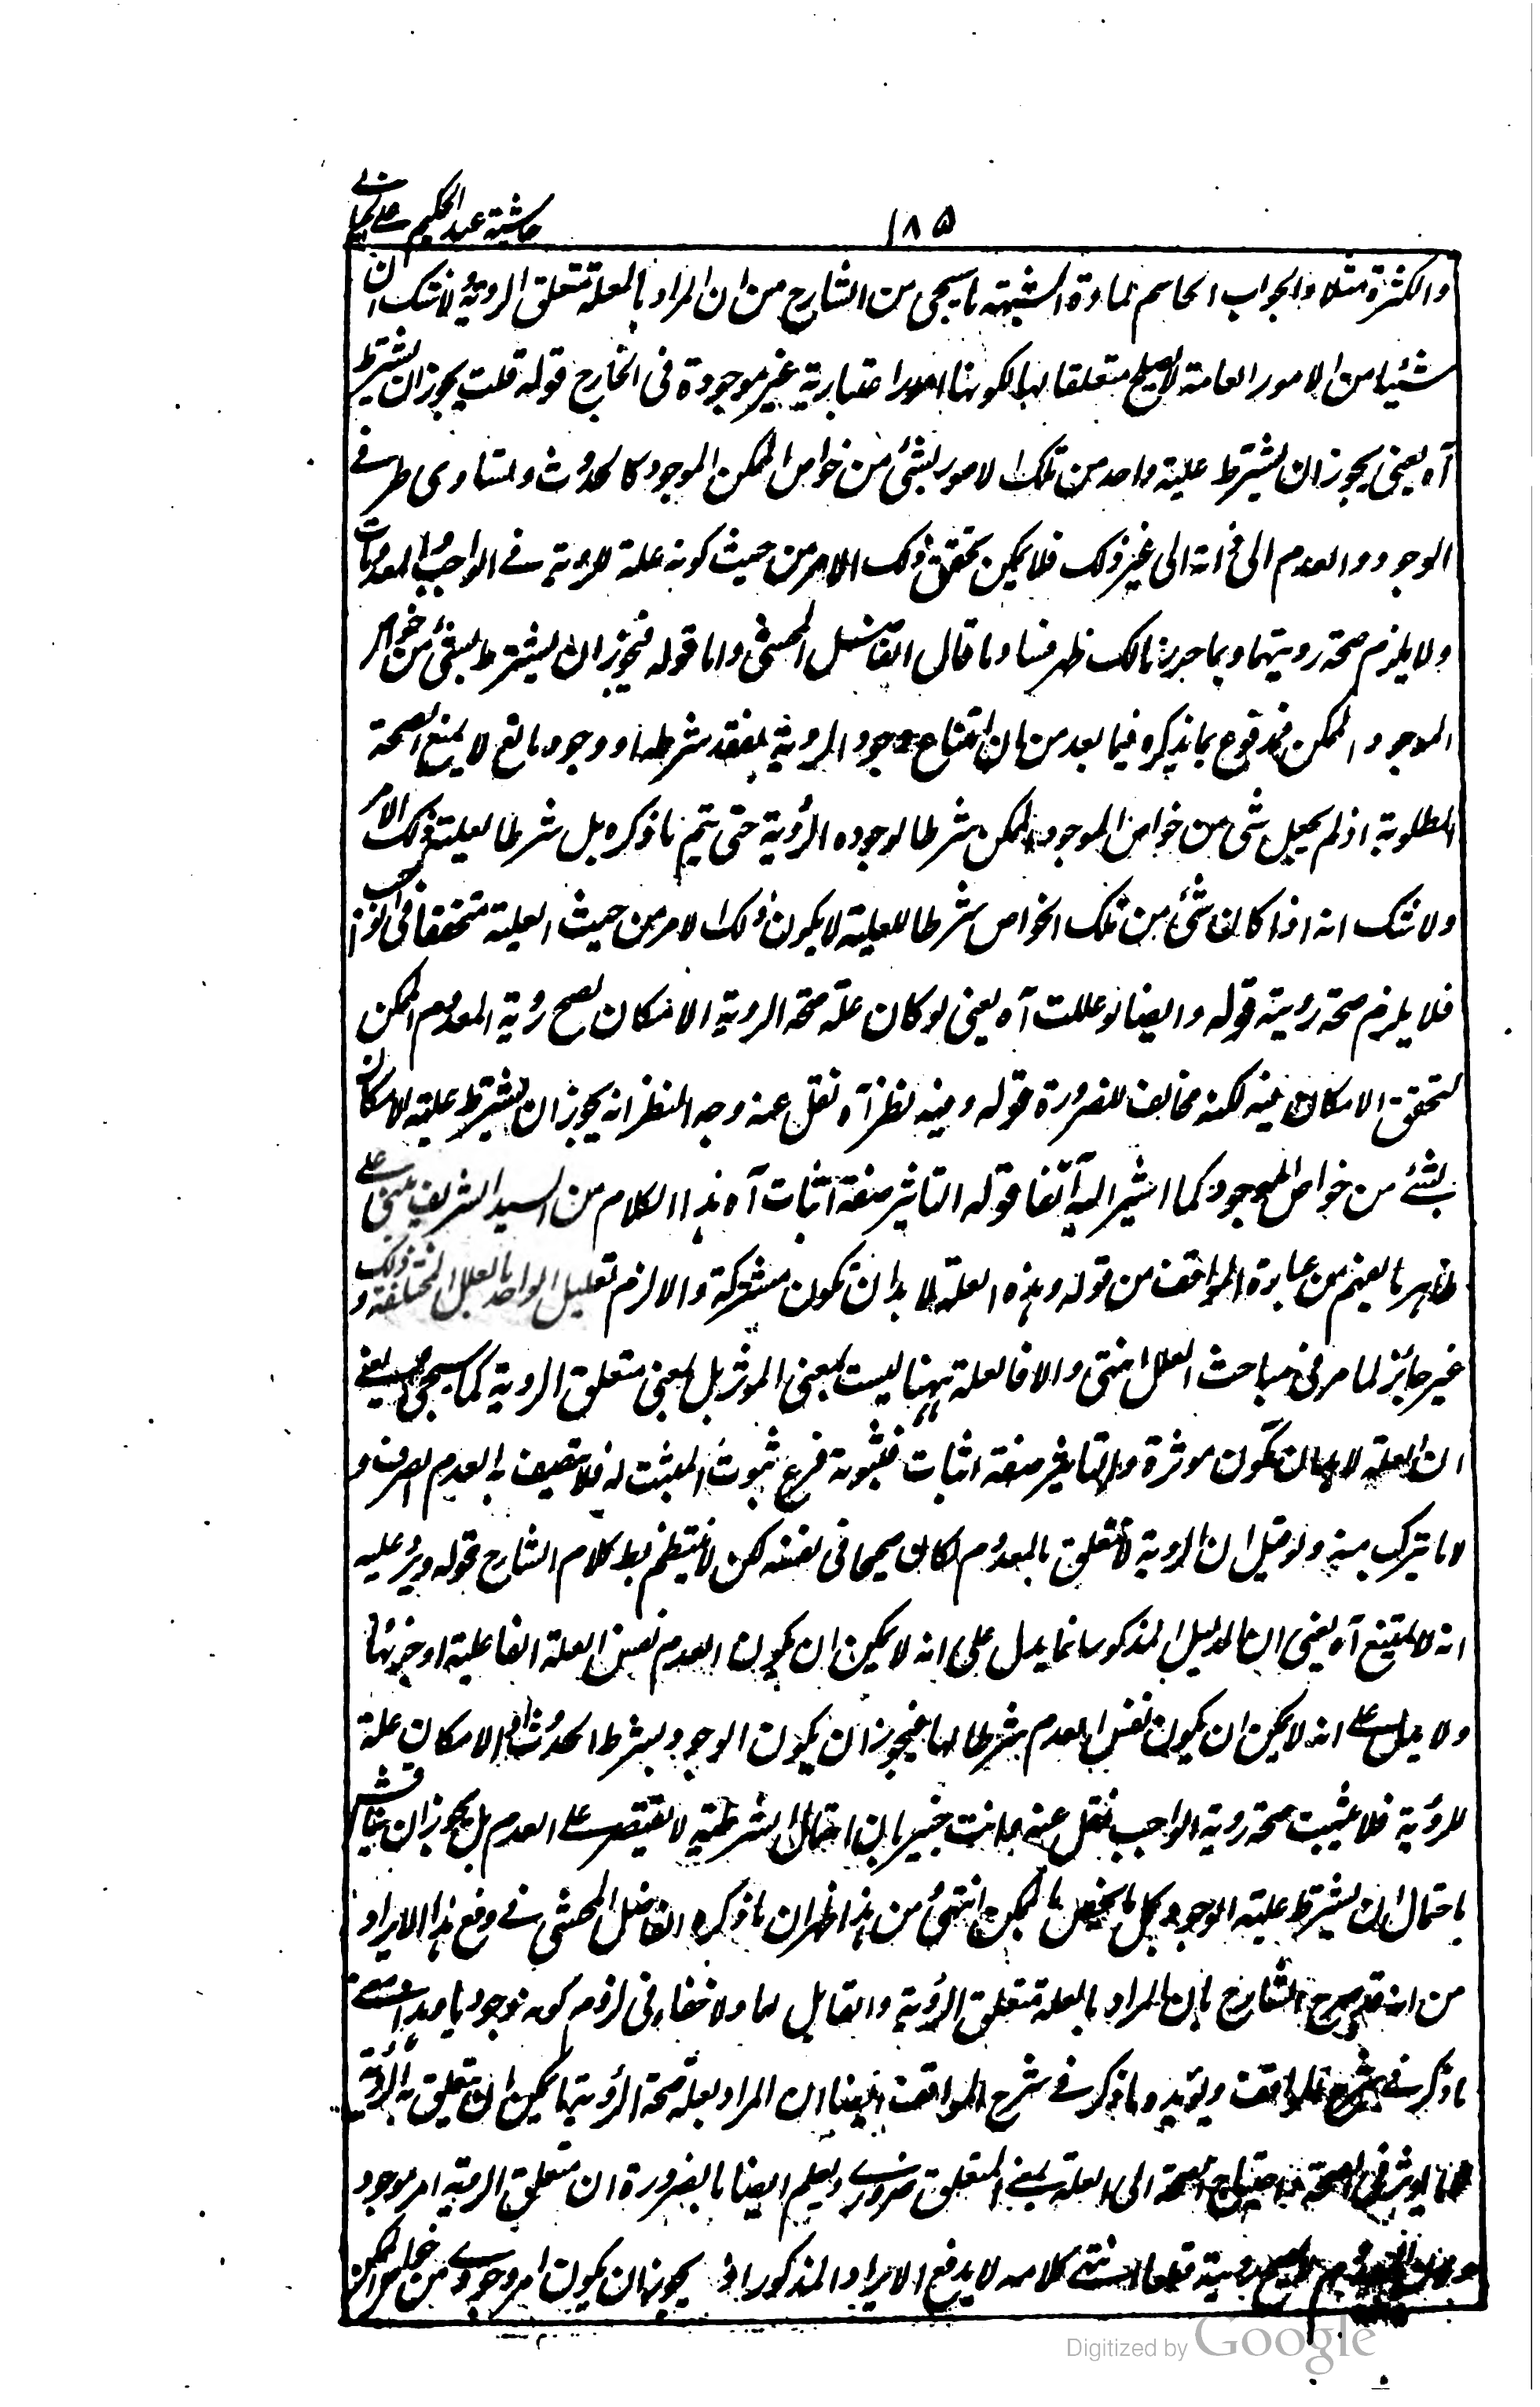 ١٨٥
حاشية عبد الحكيم على الخيالي
والكثرة مثلا والجواب الحاسم لمادة الشبهة ما سيجئ من الشارح من ان المراد بالعلة متعلق الروية ولا شك ان
شيئا من الامور العامة لا يصلح متعلقا لها لكونها امورا اعتبارية غير موجودة فى الخارج قوله قلت يجوز ان يشترط
آه يعنى يجوز ان يشترط علية واحد من تلك الامور بشئ من خواص الممكن الموجود كالحدوث وتساوى طرفے
الوجود والعدم الى ذاته الى غير ذلك فلا يمكن تحقق ذلك الامر من حيث كونه علة للروية فے الواجب والمعدومات
ولا يلزم صحة رويتهما وبما حررنا لك ظهر فساد ما قال الفاضل المحشى واما قوله فيجوز ان يشترط بشئ من خواص
الموجود الممكن فمدفوع بما يذكره فيما بعد من ان امتناع وجود الروية لفقد شرطه او وجود مانع لا يمنع الصحة
المطلوبة اذ لم يجعل شئ من خواص الموجود الممكن شرطا لوجوده الرؤية حتى يتم ما ذكره بل شرطا لعلية ذلك الامر
ولا شك انه اذا كان شئ من تلك الخواص شرطا للعلية لا يكون ذلك الامر من حيث العلية متحققا فى الواجب
فلا يلزم صحة رويته قوله وايضا لو عللت آه يعنى لو كان علة صحة الروية الامكان لصح روية المعدوم الممكن
لتحقق الامكان فيه لكنه مخالف للضرورة قوله وفيه نظر آه نقل عنه وجه النظر انه يجوز ان يشترط علية الامكان
بشئے من خواص الموجود كما اشير اليه آنفا قوله التاثير صفة اثبات آه هذا الكلام من السيد الشريف مبنى علے
ظاهر ما يفهم من عبارة المواقف من قوله وهذه العلة لا بد ان تكون مشتركة والا لزم تعليل الواحد بالعلل المختلفة وذلك
غير جائز لما مر فى مباحث العلل انتهى والا فالعلة ههنا ليست بمعنى الموثر بل بمعنى متعلق الروية كما سيجئ يعنے
ان العلة لا بد ان تكون موثرة والتاثير صفة اثبات فثبوته فرع ثبوت المثبت له فلا يتصف به العدم الصرف و
لا ما يتركب منه ولو قيل ان الروية لا تتعلق بالمعدوم لكان صحيحا فى نفسه لكن لا ينتظم بط كلام الشارح قوله ويرد عليه
انه لا يمتنع آه يعنى ان الدليل المذكور انما يدل على انه لا يمكن ان يكون العدم نفس العلة الفاعلية او جزئها
ولا يدل علے انه لا يمكن ان يكون نفس العدم شرطا لها فيجوز ان يكون الوجود بشرط الحدوث او الامكان علة
للرؤية فلا يثبت صحة روية الواجب نقل عنه وانت خبير بان احتمال الشرطية لا يقتصر علے العدم بل يجوز ان يناقش
باحتمال ان يشترط علية الوجود بكل ما يختص بالممكن انتهى من هذا ظهر ان ما ذكره الفاضل المحشى فے دفع هذا الايراد
من انه قد صرح الشارح بان المراد بالعلة متعلق الرؤية والقابل لها ولا خفاء فى لزوم كونه موجوديا
ما ذكر فے شرح المواقف ويويده ما ذكر فے شرح المواقف ايضا ان المراد بعلة صحة الرؤية ما يمكن ان يتعلق به الرؤية
لا ما يوثر فى الصحة احتياج الصحة الى العلة بمعنے المتعلق ضرورے ويعلم ايضا بالضرورة ان متعلق الروية امر موجود
رويته قطعا انتهے كلامه لا يدفع الايراد المذكور اذ يجوز ان يكون امر وجودے من خواص الممكن
Digitized by Google